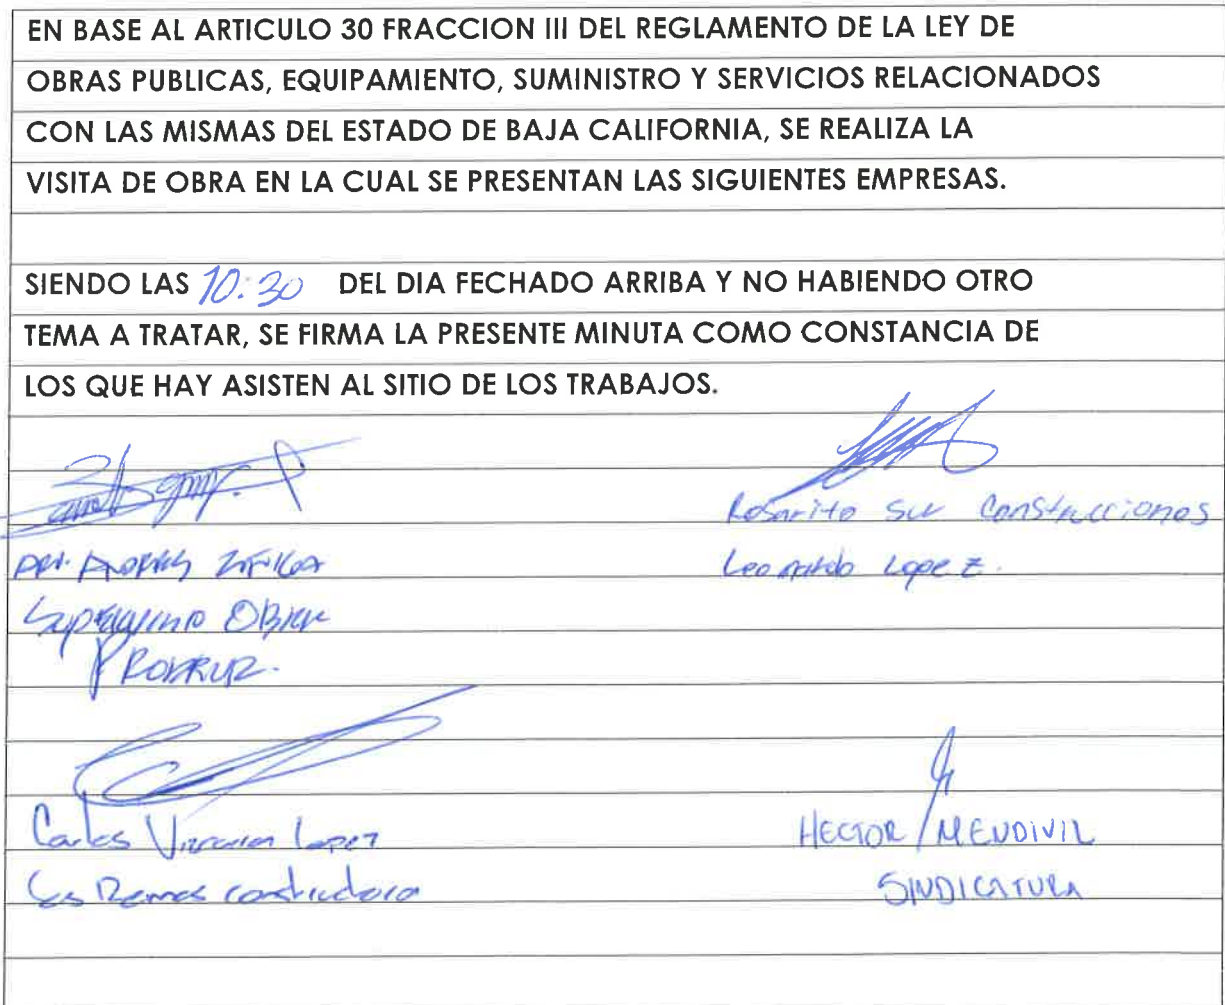 EN BASE AL ARTICULO 30 FRACCION III DEL REGLAMENTO DE LA LEY DE
OBRAS PUBLICAS, EQUIPAMIENTO, SUMINISTRO Y SERVICIOS RELACIONADOS
CON LAS MISMAS DEL ESTADO DE BAJA CALIFORNIA, SE REALIZA LA
VISITA DE OBRA EN LA CUAL SE PRESENTAN LAS SIGUIENTES EMPRESAS.
SIENDO LAS 10:30 DEL DIA FECHADO ARRIBA Y NO HABIENDO OTRO
TEMA A TRATAR, SE FIRMA LA PRESENTE MINUTA COMO CONSTANCIA DE
LOS QUE HAY ASISTEN AL SITIO DE LOS TRABAJOS.
Rosarito Sur Construcciones
Leonardo Lopez.
Carlos Lopez
constructora
HECTOR MENDIVIL
SINDICATURA